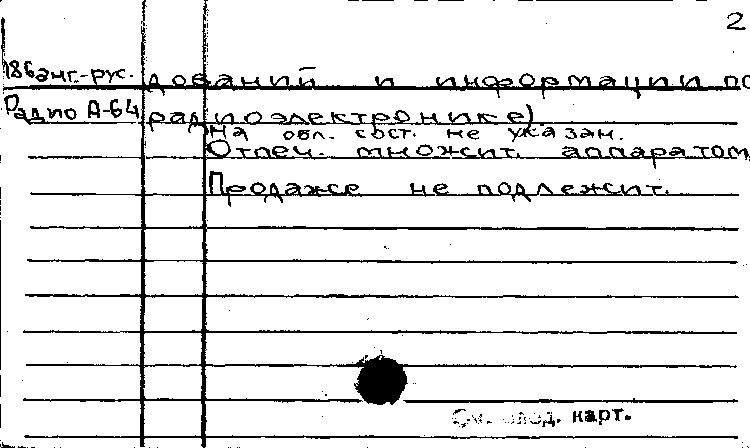 2
186 энг.-рус. дований и информации по
Радио А-64 радиоэлектронике).
На обл. сост. не указан.
Отпеч. множит. аппаратом
Продаже не подлежит.
См. след. карт.